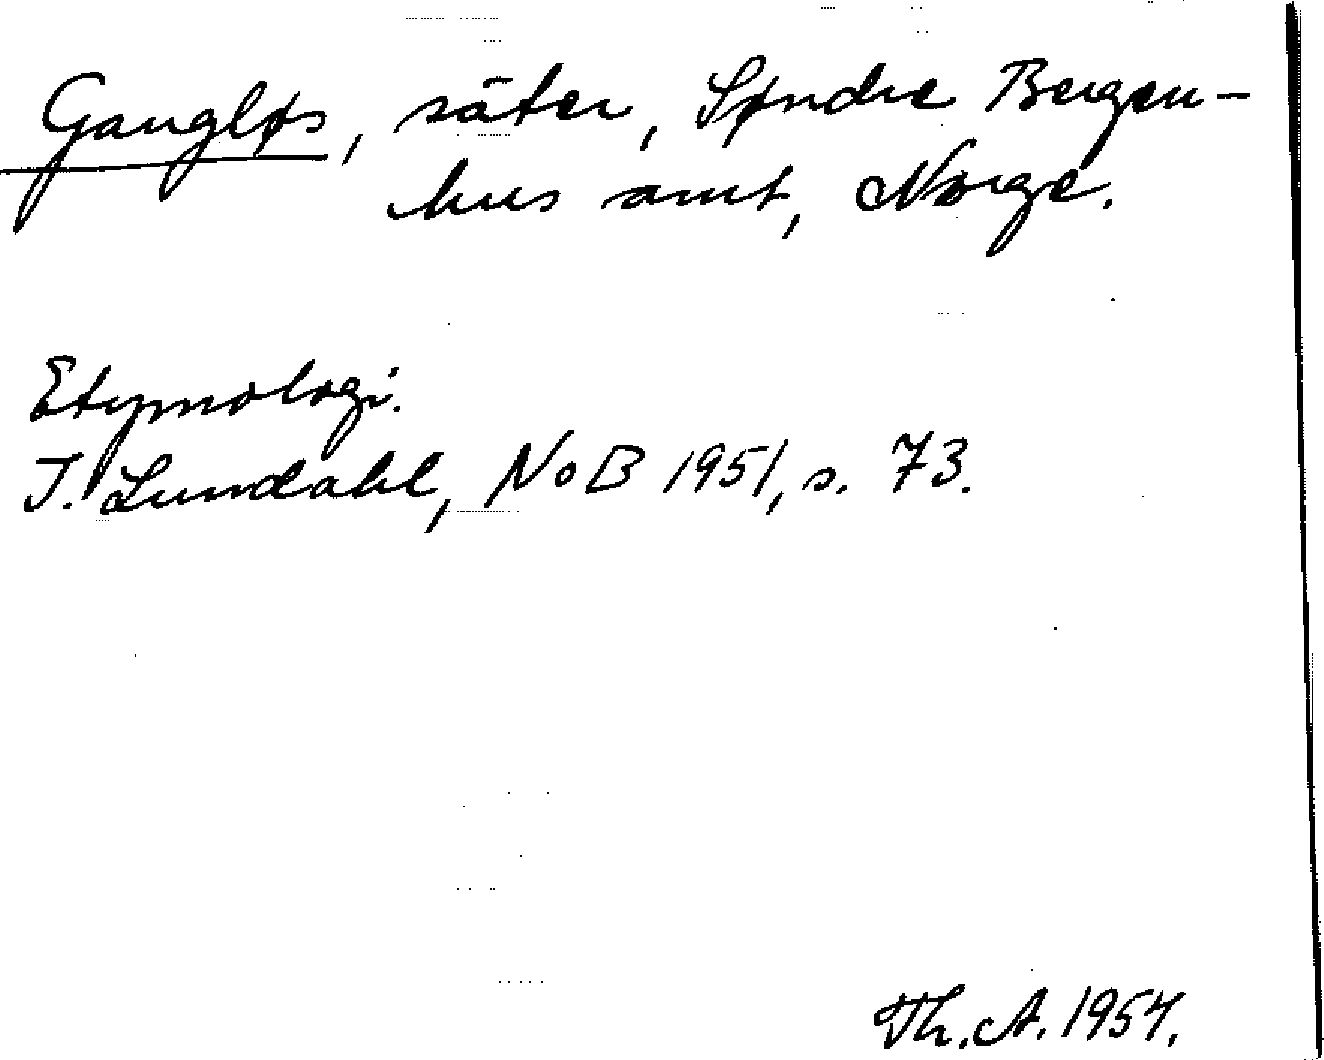 Gangløs, säter, Søndre Bergen-
hus amt, Norge.
Etymologi.
I. Lundahl, NoB 1951, s. 73.
Th. A. 1954.